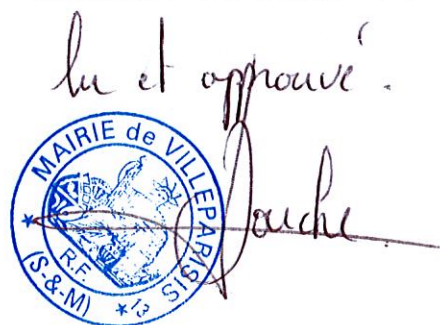 lu et approuvé.
MAIRIE de VILLEPARISIS
R.F
(S-&-M)
* 13 *